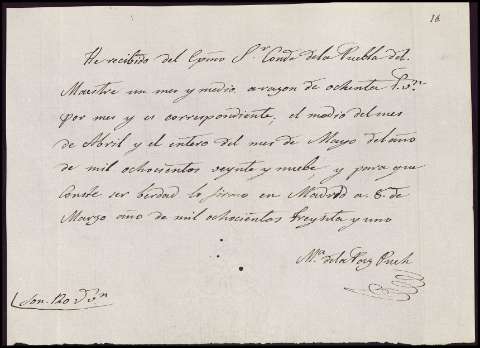 18
He recibido del Exmo Sr. Conde de la Puebla del
Maestre un mes y medio arazon de ochenta r.s v.n
por mes y es correspondiente, el medio del mes
de Abril y el entero del mes de Mayo del año
de mil ochocientos veynte y nuebe, y para que
Conste ser berdad lo firmo en Madrid a 8 de
Marzo ano de mil ochocientos treynta y uno
M.a de la Paz Puch
Son. 120 r.s v.n